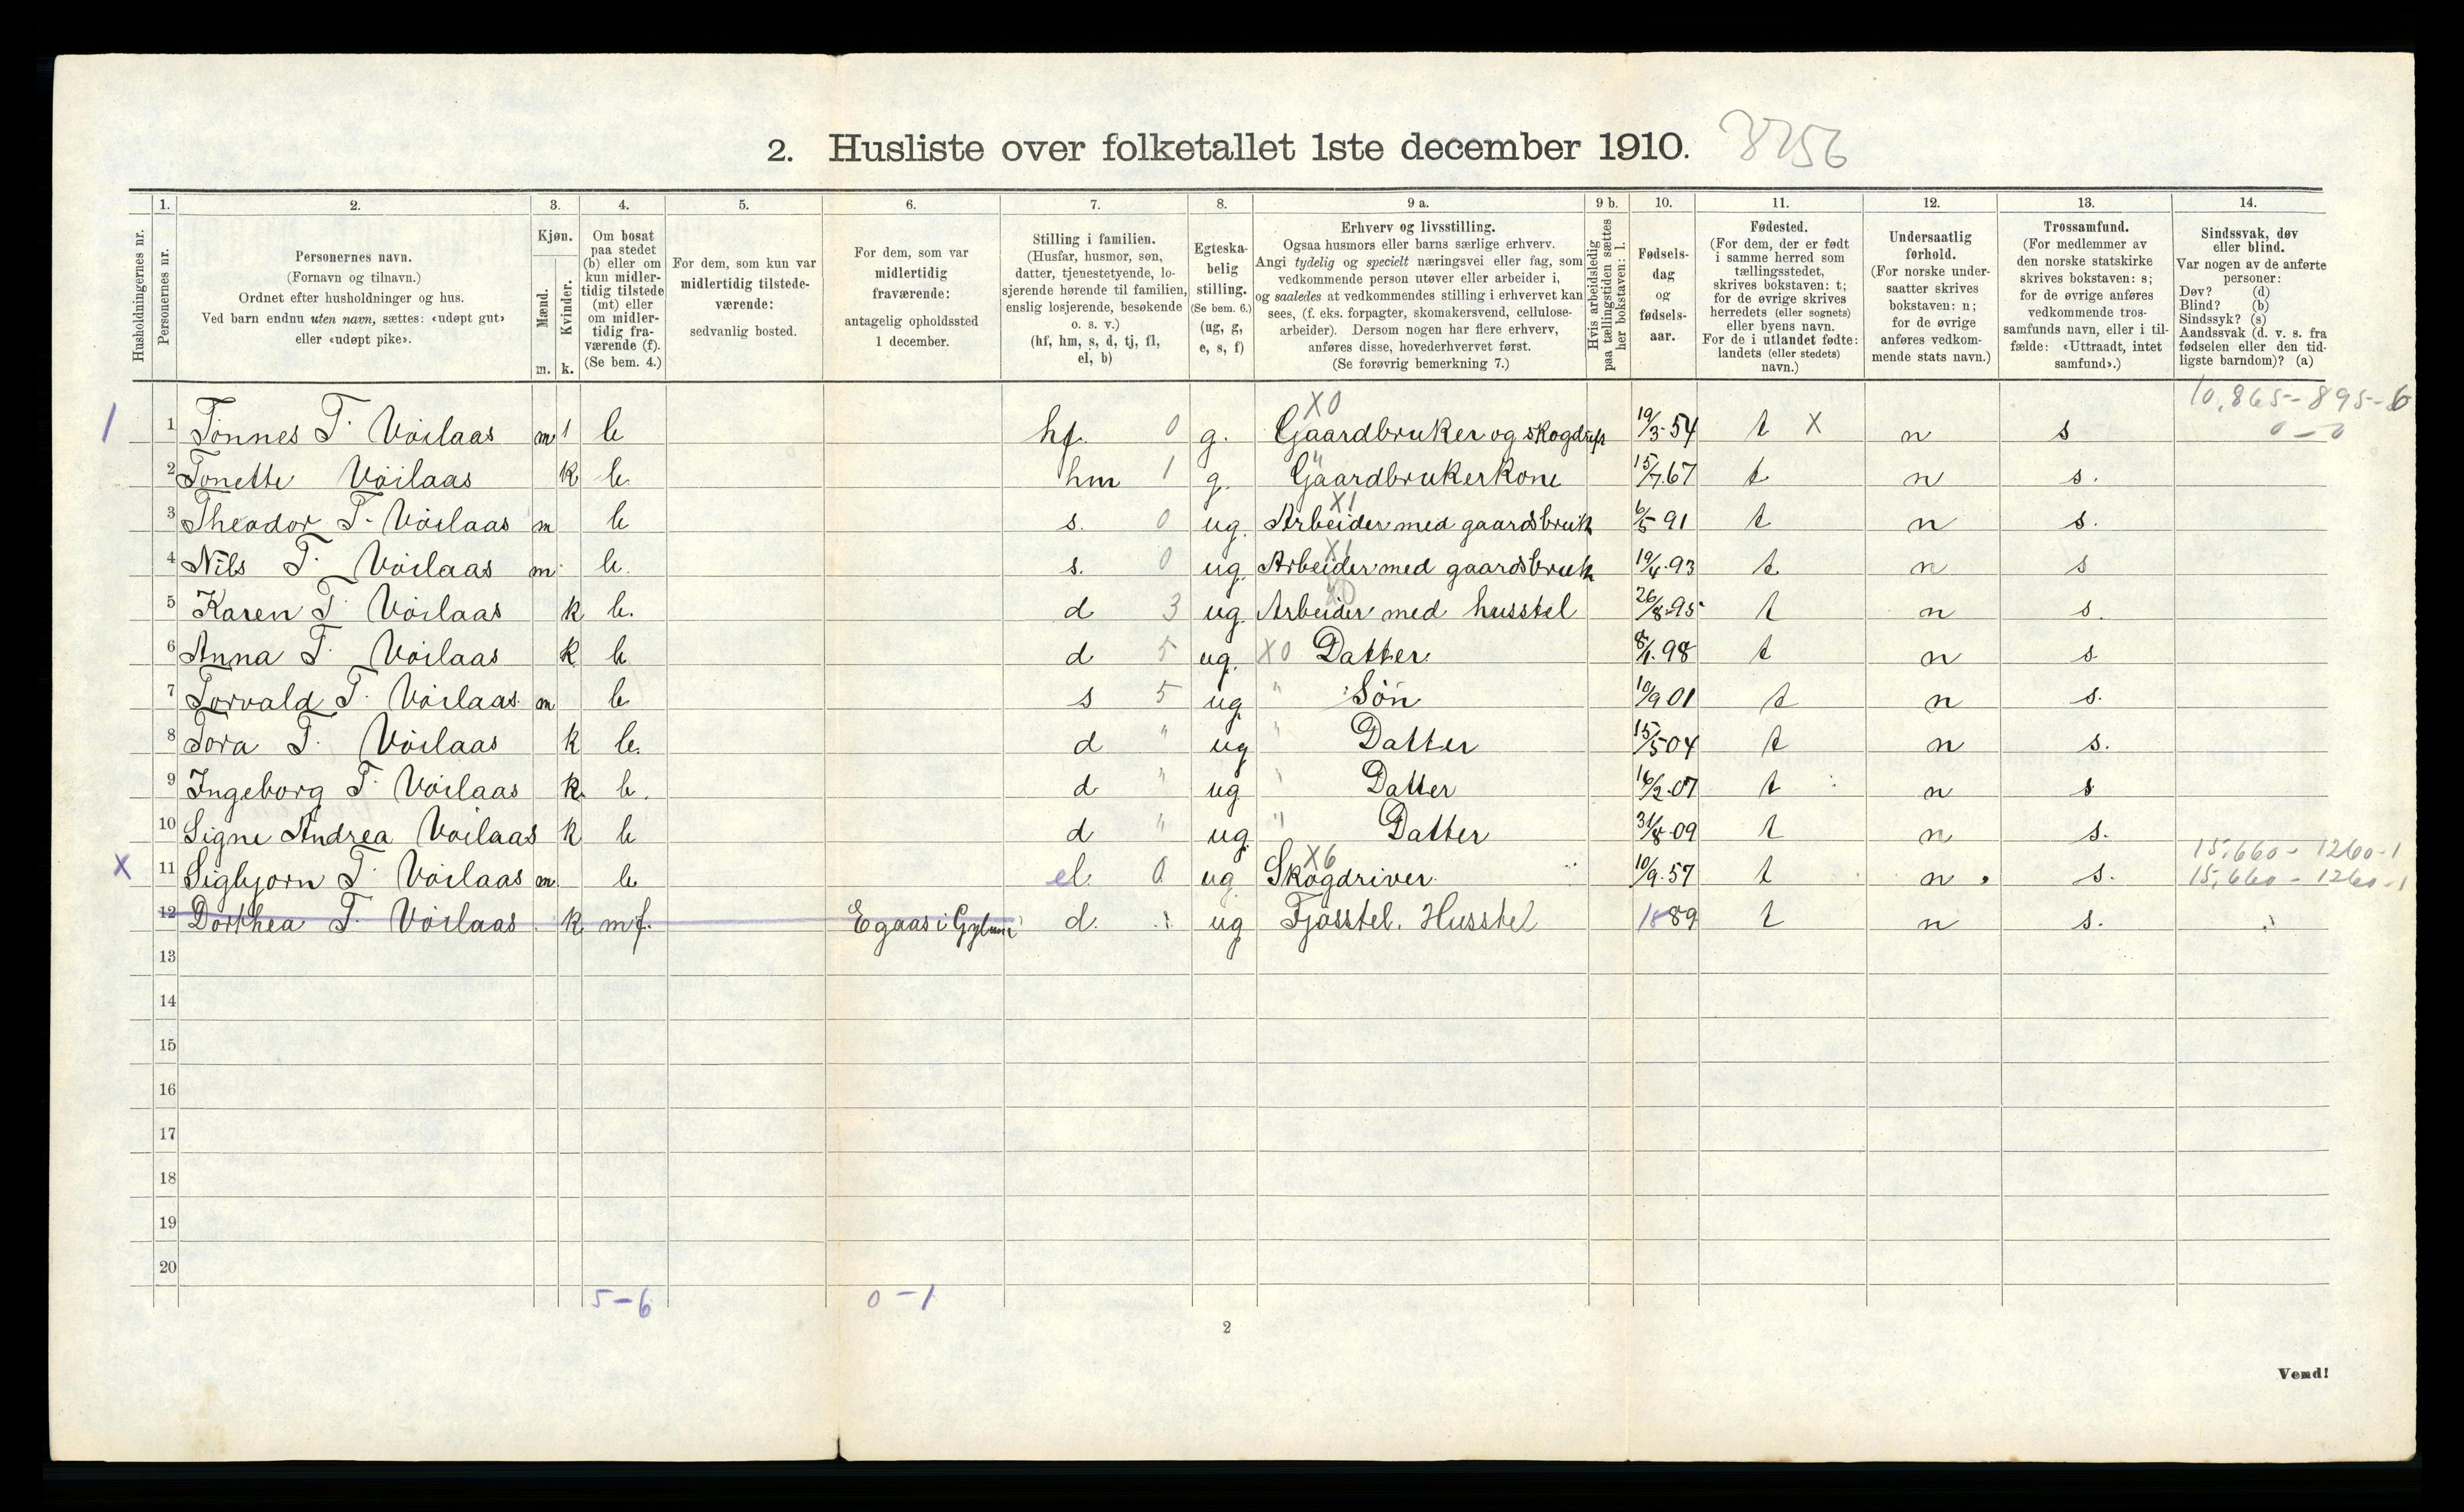 2. Husliste over folketallet 1ste december 1910. 8256
1. 2. 3. 4. 5. 6. 7. 8. 9 a. 9 b. 10. 11. 12. 13. 14.
Husholdningernes nr.
Personernes nr.
Personernes navn.
(Fornavn og tilnavn.)
Ordnet efter husholdninger og hus.
Ved barn endnu uten navn, sættes: «udøpt gut»
eller «udøpt pike».
Kjøn.
Mænd.
Kvinder.
m. k.
Om bosat
paa stedet
(b) eller om
kun midler-
tidig tilstede
(mt) eller
om midler-
tidig fra-
værende (f).
(Se bem. 4.)
For dem, som kun var
midlertidig tilstede-
værende:
sedvanlig bosted.
For dem, som var
midlertidig
fraværende:
antagelig opholdssted
1 december.
Stilling i familien.
(Husfar, husmor, søn,
datter, tjenestetyende, lo-
sjerende hørende til familien,
enslig losjerende, besøkende
o. s. v.)
(hf, hm, s, d, tj, fl,
el, b)
Egteska-
belig
stilling.
(Se bem. 6.)
(ug, g,
e, s, f)
Erhverv og livsstilling.
Ogsaa husmors eller barns særlige erhverv.
Angi tydelig og specielt næringsvei eller fag, som
vedkommende person utøver eller arbeider i,
og saaledes at vedkommendes stilling i erhvervet kan
sees, (f. eks. forpagter, skomakersvend, cellulose-
arbeider). Dersom nogen har flere erhverv,
anføres disse, hovederhvervet først.
(Se forøvrig bemerkning 7.)
Hvis arbeidsledig
paa tællingstiden sættes
her bokstaven: l.
Fødsels-
dag
og
fødsels-
aar.
Fødested.
(For dem, der er født
i samme herred som
tællingsstedet,
skrives bokstaven: t;
for de øvrige skrives
herredets (eller sognets)
eller byens navn.
For de i utlandet fødte:
landets (eller stedets)
navn.)
Undersaatlig
forhold.
(For norske under-
saatter skrives
bokstaven: n;
for de øvrige
anføres vedkom-
mende stats navn.)
Trossamfund.
(For medlemmer av
den norske statskirke
skrives bokstaven: s;
for de øvrige anføres
vedkommende tros-
samfunds navn, eller i til-
fælde: «Uttraadt, intet
samfund».)
Sindssvak, døv
eller blind.
Var nogen av de anførte
personer:
Døv? (d)
Blind? (b)
Sindssyk? (s)
Aandssvak (d. v. s. fra
fødselen eller den tid-
ligste barndom)? (a)
X0 10,865-895-6
1 1 Tønnes T. Vöilaas m 1 b hf. 0 g. Gaardbruker og skogdrift 19/3-54 t X n s 0-0
2 Tonette Vöilaas k b. hm 1 g. " Gaardbrukerkone 15/7.67 t n s.
X1
3 Theodor T. Vöilaas m b s. 0 ug. Arbeider med gaardsbruk 6/5 91 t n s.
X1
4 Nils T. Vöilaas m b. s. 0 ug. Arbeider med gaardsbruk 19/4.93 t n s
X0
5 Karen T. Vöilaas k b. d 3 ug. Arbeider med husstel 26/8.95 t n s.
6 Anna T. Vöilaas k b d 5 ug. X0 Datter. 8/1.98 t n s
7 Torvald T. Vöilaas. m b s 5 ug " Sön 10/9 01 t n s.
8 Tora T. Vöilaas k b. d " ug " Datter 15/5 04 t n s.
9 Ingeborg T. Vöilaas k. b. d " ug " Datter 16/2.07 t n s
10 Signe Andrea Vöilaas k b d " ug. " Datter 31/8-09 t n s.
X6 15,660-1260-1
X 11 Sigbjørn T. Vöilaas m. b el. 0 ug Skogdriver. 10/9.57 t n s. 15,660-1260-1
12 Dorthea T. Vöilaas k. m f. Egaas i d. ug Fjösstel. Husstel 1889 t n s.
13
14
15
16
17
18
19
20
5-6 0-1
2
Vend!